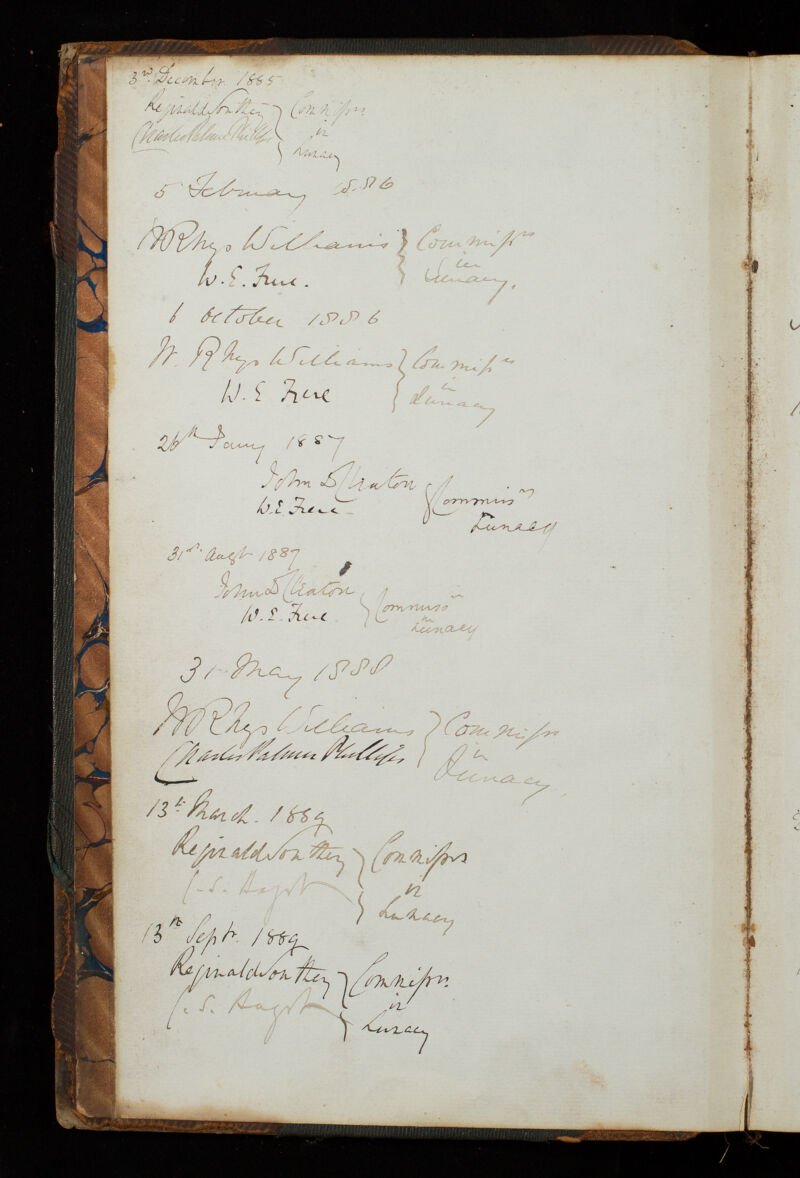 3rd December 1885
Reginald Southey } Commissrs
Charles Palmer Phillips } in
Lunacy
5 February 1886
W Rhys Williams } Commissrs
W. E. Frere. } in Lunacy.
6 October 1886
W. Rhys Williams } Commissrs
W. E Frere } in Lunacy
26th Jany 1887
John D Cleaton } Commissrs
W. E. Frere
Lunacy
31st Augt 1887
John D Cleaton } Commissrs
W. E. Frere in Lunacy
31 May 1888
W Rhys Williams } Commissrs
Charles Palmer Phillips in
Lunacy.
13th March. 1889
Reginald Southey } Commissrs
C. S. Bagot } in
Lunacy
13th Septr. 1889
Reginald Southey } Commissrs.
C. S. Bagot } in
Lunacy